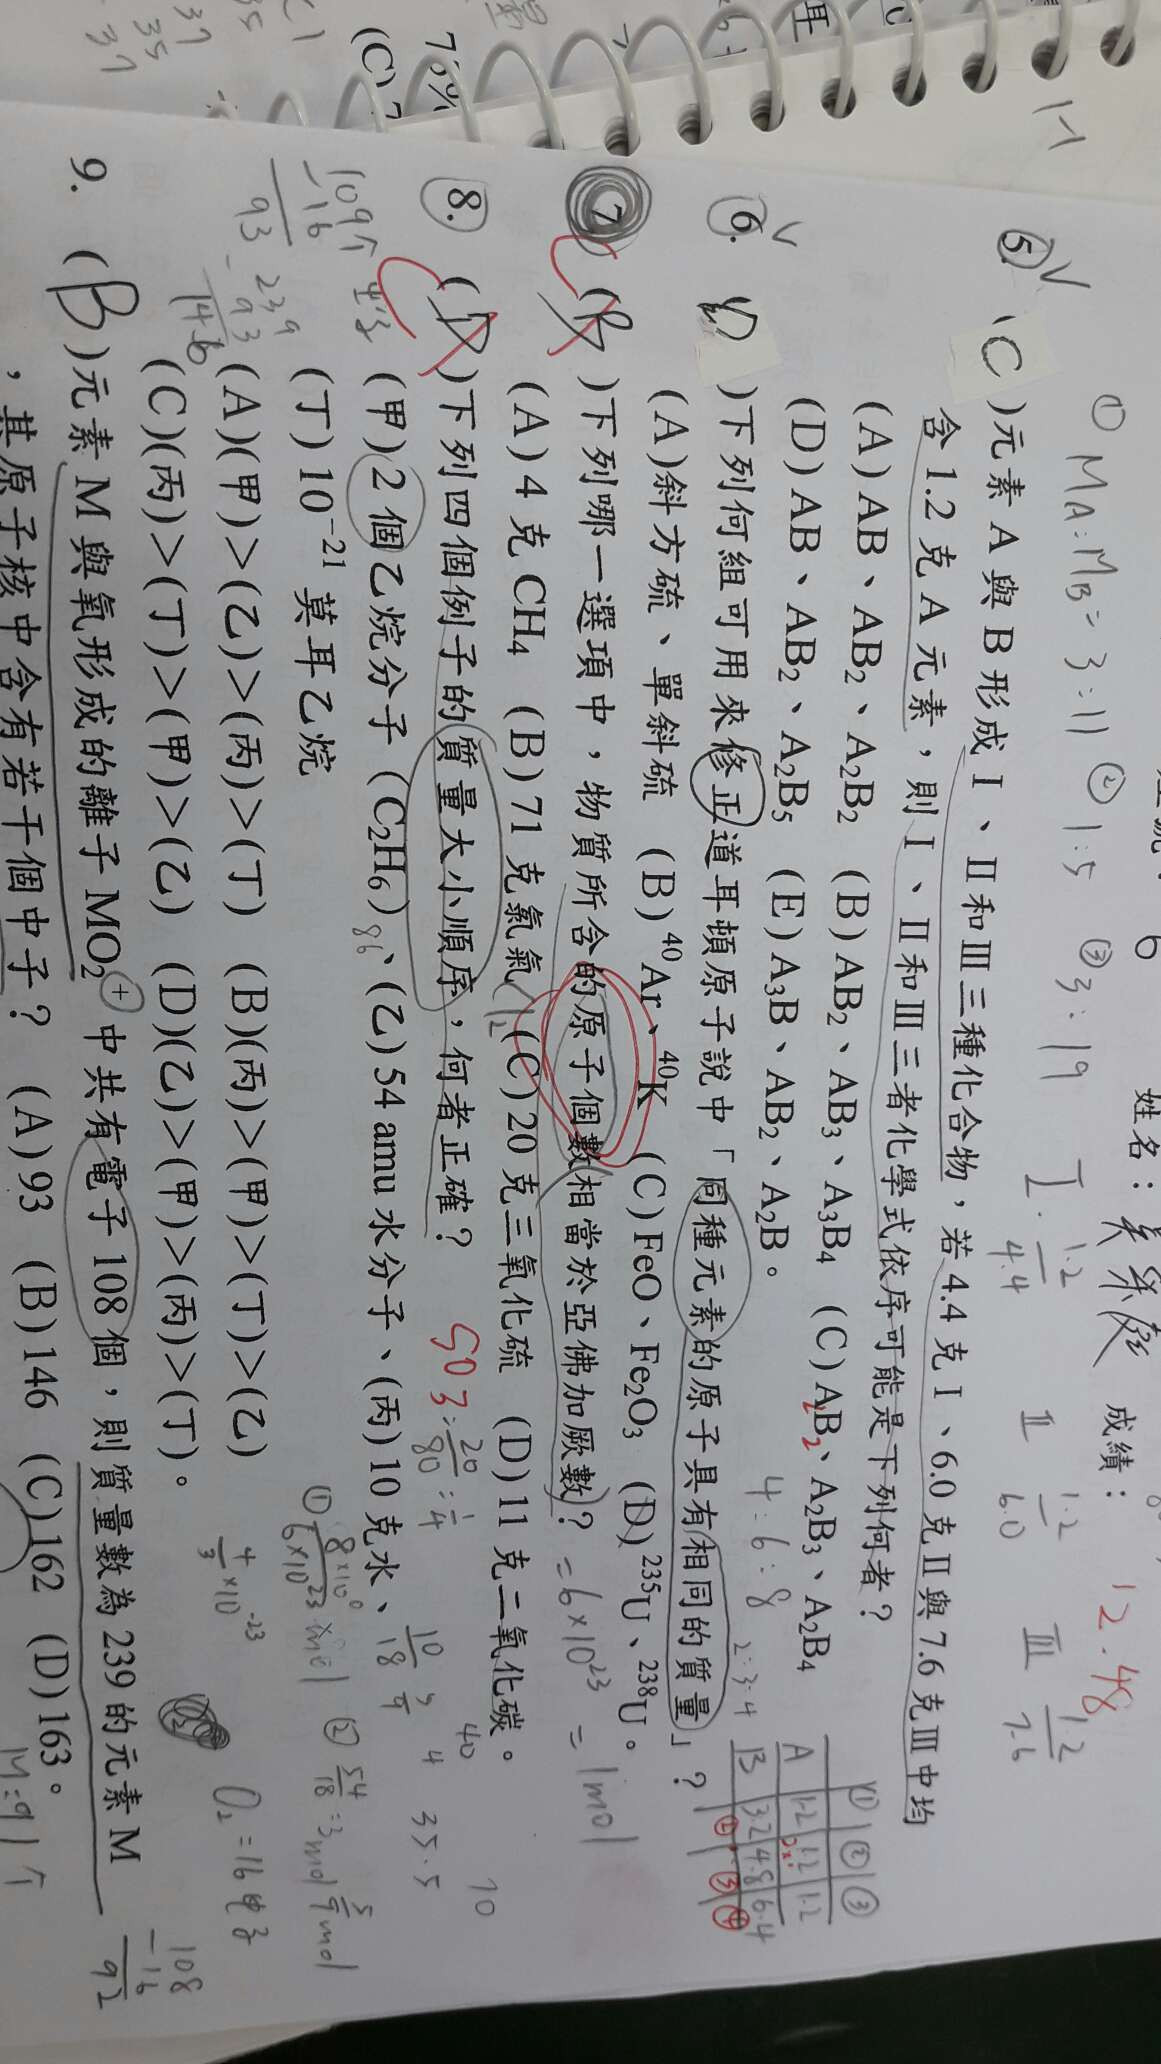 姓名：
成績：
12.48
① MA:MB=3:11 ② 1:5 ③ 3:19
I. 1.2/4.4 II 1.2/6.0 III 1.2/7.6
5. (C)元素 A 與 B 形成 I、II和III三種化合物，若 4.4 克 I、6.0 克 II 與 7.6 克 III 中均
含 1.2 克 A 元素，則 I、II 和 III 三者化學式依序可能是下列何者？
(A) AB、AB₂、A₂B₂ (B) AB₂、AB₃、A₃B₄ (C) AB₂、A₂B₃、A₂B₄
(D) AB、AB₂、A₂B₅ (E) A₃B、AB₂、A₂B。
4:6:8
2:3:4
① ② ③
A 1.2 1.2 1.2
B 3.2 4.8 6.4
② ③ ④
6. (D)下列何組可用來修正道耳頓原子說中「同種元素的原子具有相同的質量」？
(A)斜方硫、單斜硫 (B) ⁴⁰Ar、⁴⁰K (C) FeO、Fe₂O₃ (D) ²³⁵U、²³⁸U。
7. (B)下列哪一選項中，物質所含的原子個數相當於亞佛加厥數？ =6×10²³ =1mol
(A) 4 克 CH₄ (B) 71 克氯氣 (C) 20 克三氧化硫 (D) 11 克二氧化碳。
SO3: 20/80 = 1/4
8. (D)下列四個例子的質量大小順序，何者正確？
(甲) 2 個乙烷分子（C₂H₆）、(乙) 54 amu 水分子、(丙) 10 克水、
(丁) 10⁻²¹ 莫耳乙烷
(A)(甲)＞(乙)＞(丙)＞(丁) (B)(丙)＞(甲)＞(丁)＞(乙)
(C)(丙)＞(丁)＞(甲)＞(乙) (D)(乙)＞(甲)＞(丙)＞(丁)。
10/18
40
4
35.5
② 54/18 = 3 mol
5/9 mol
4/3 ×10⁻²³
109个
-16
93
239
93
146
9. (B)元素 M 與氧形成的離子 MO₂⁺ 中共有電子 108 個，則質量數為 239 的元素 M
，其原子核中含有若干個中子？ (A) 93 (B) 146 (C) 162 (D) 163。
108
-16
92
76%
(C)